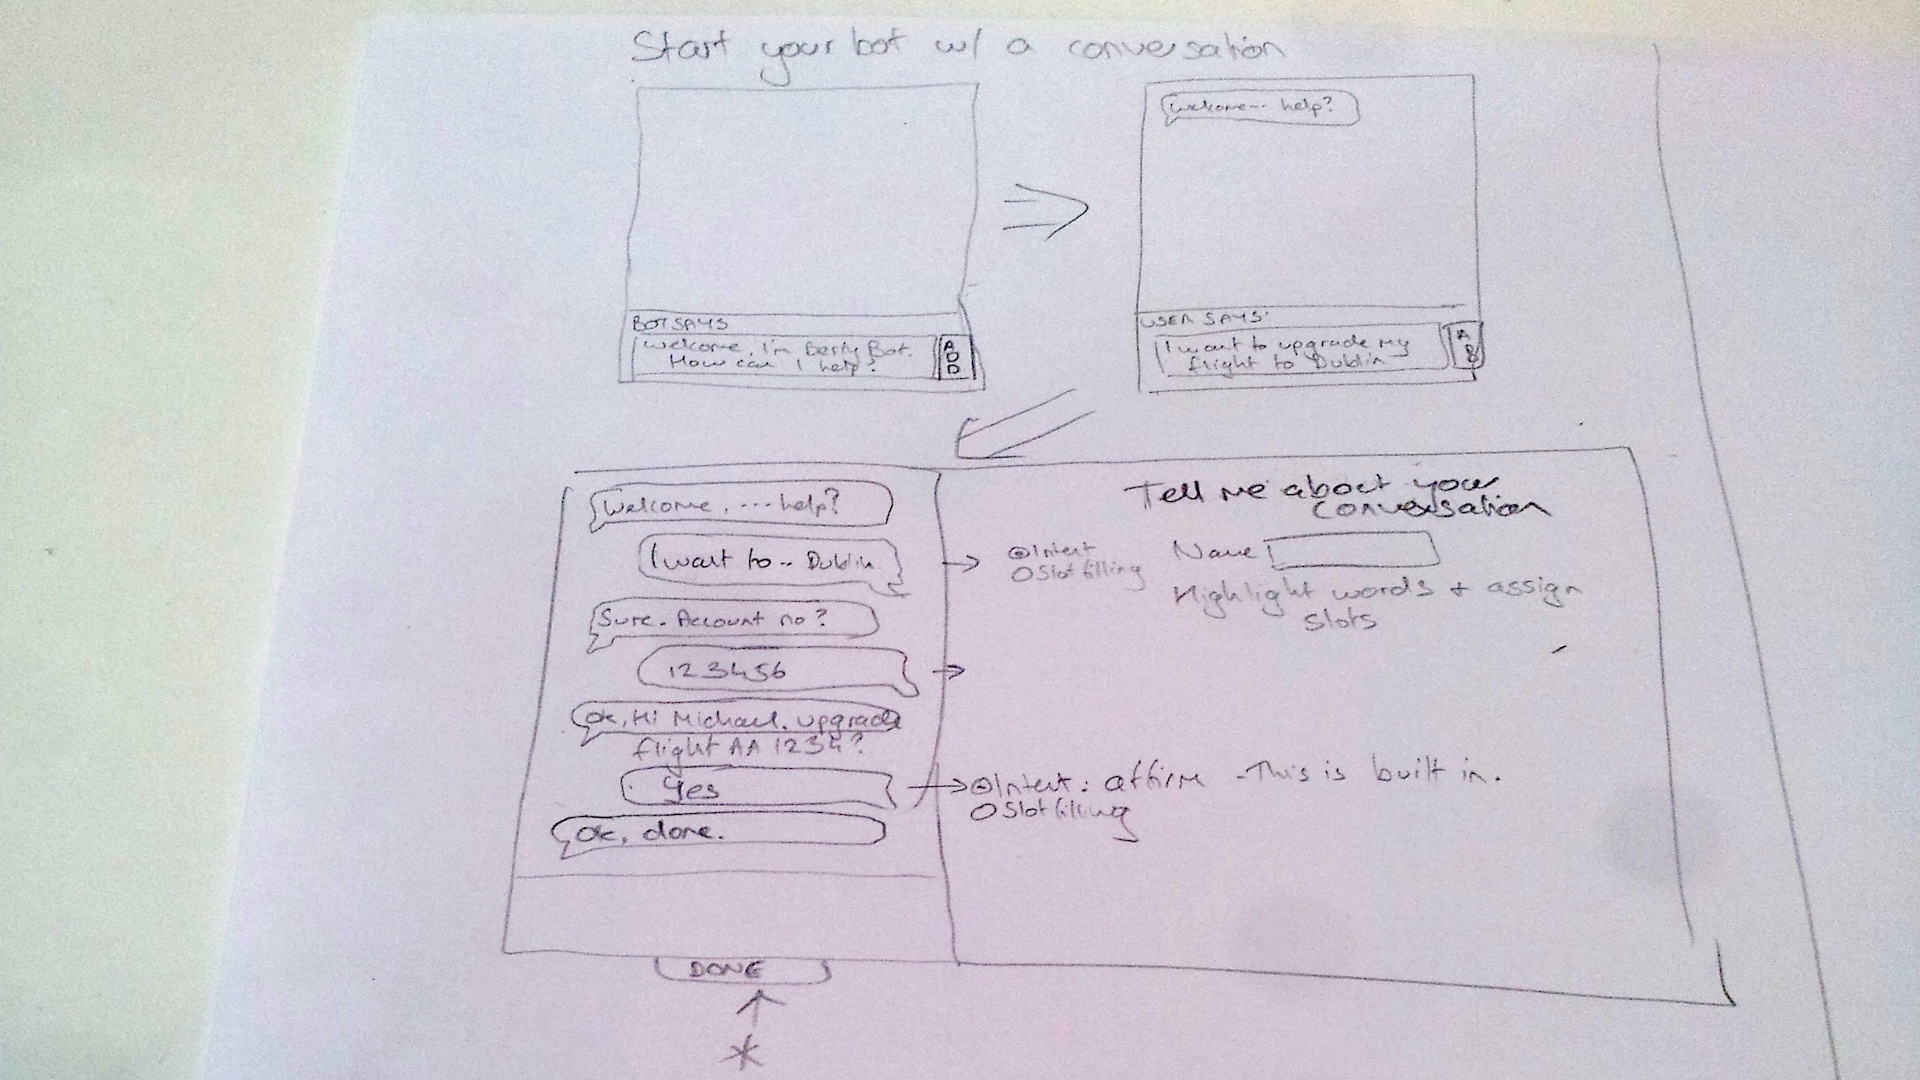 Start your bot w/ a conversation
Welcome... help?
BOT SAYS
Welcome, I'm Berty Bot.
How can I help?
ADD
USER SAYS:
I want to upgrade my
flight to Dublin
Welcome. ...help?
I want to .. Dublin
Sure. Account no?
123456
Ok, Hi Michael. upgrade
flight AA 1234?
Yes
Ok, done.
DONE
Tell me about your
conversation
Intent
Slot filling
Name
Highlight words + assign
slots
Intent: affirm - This is built in.
Slot filling